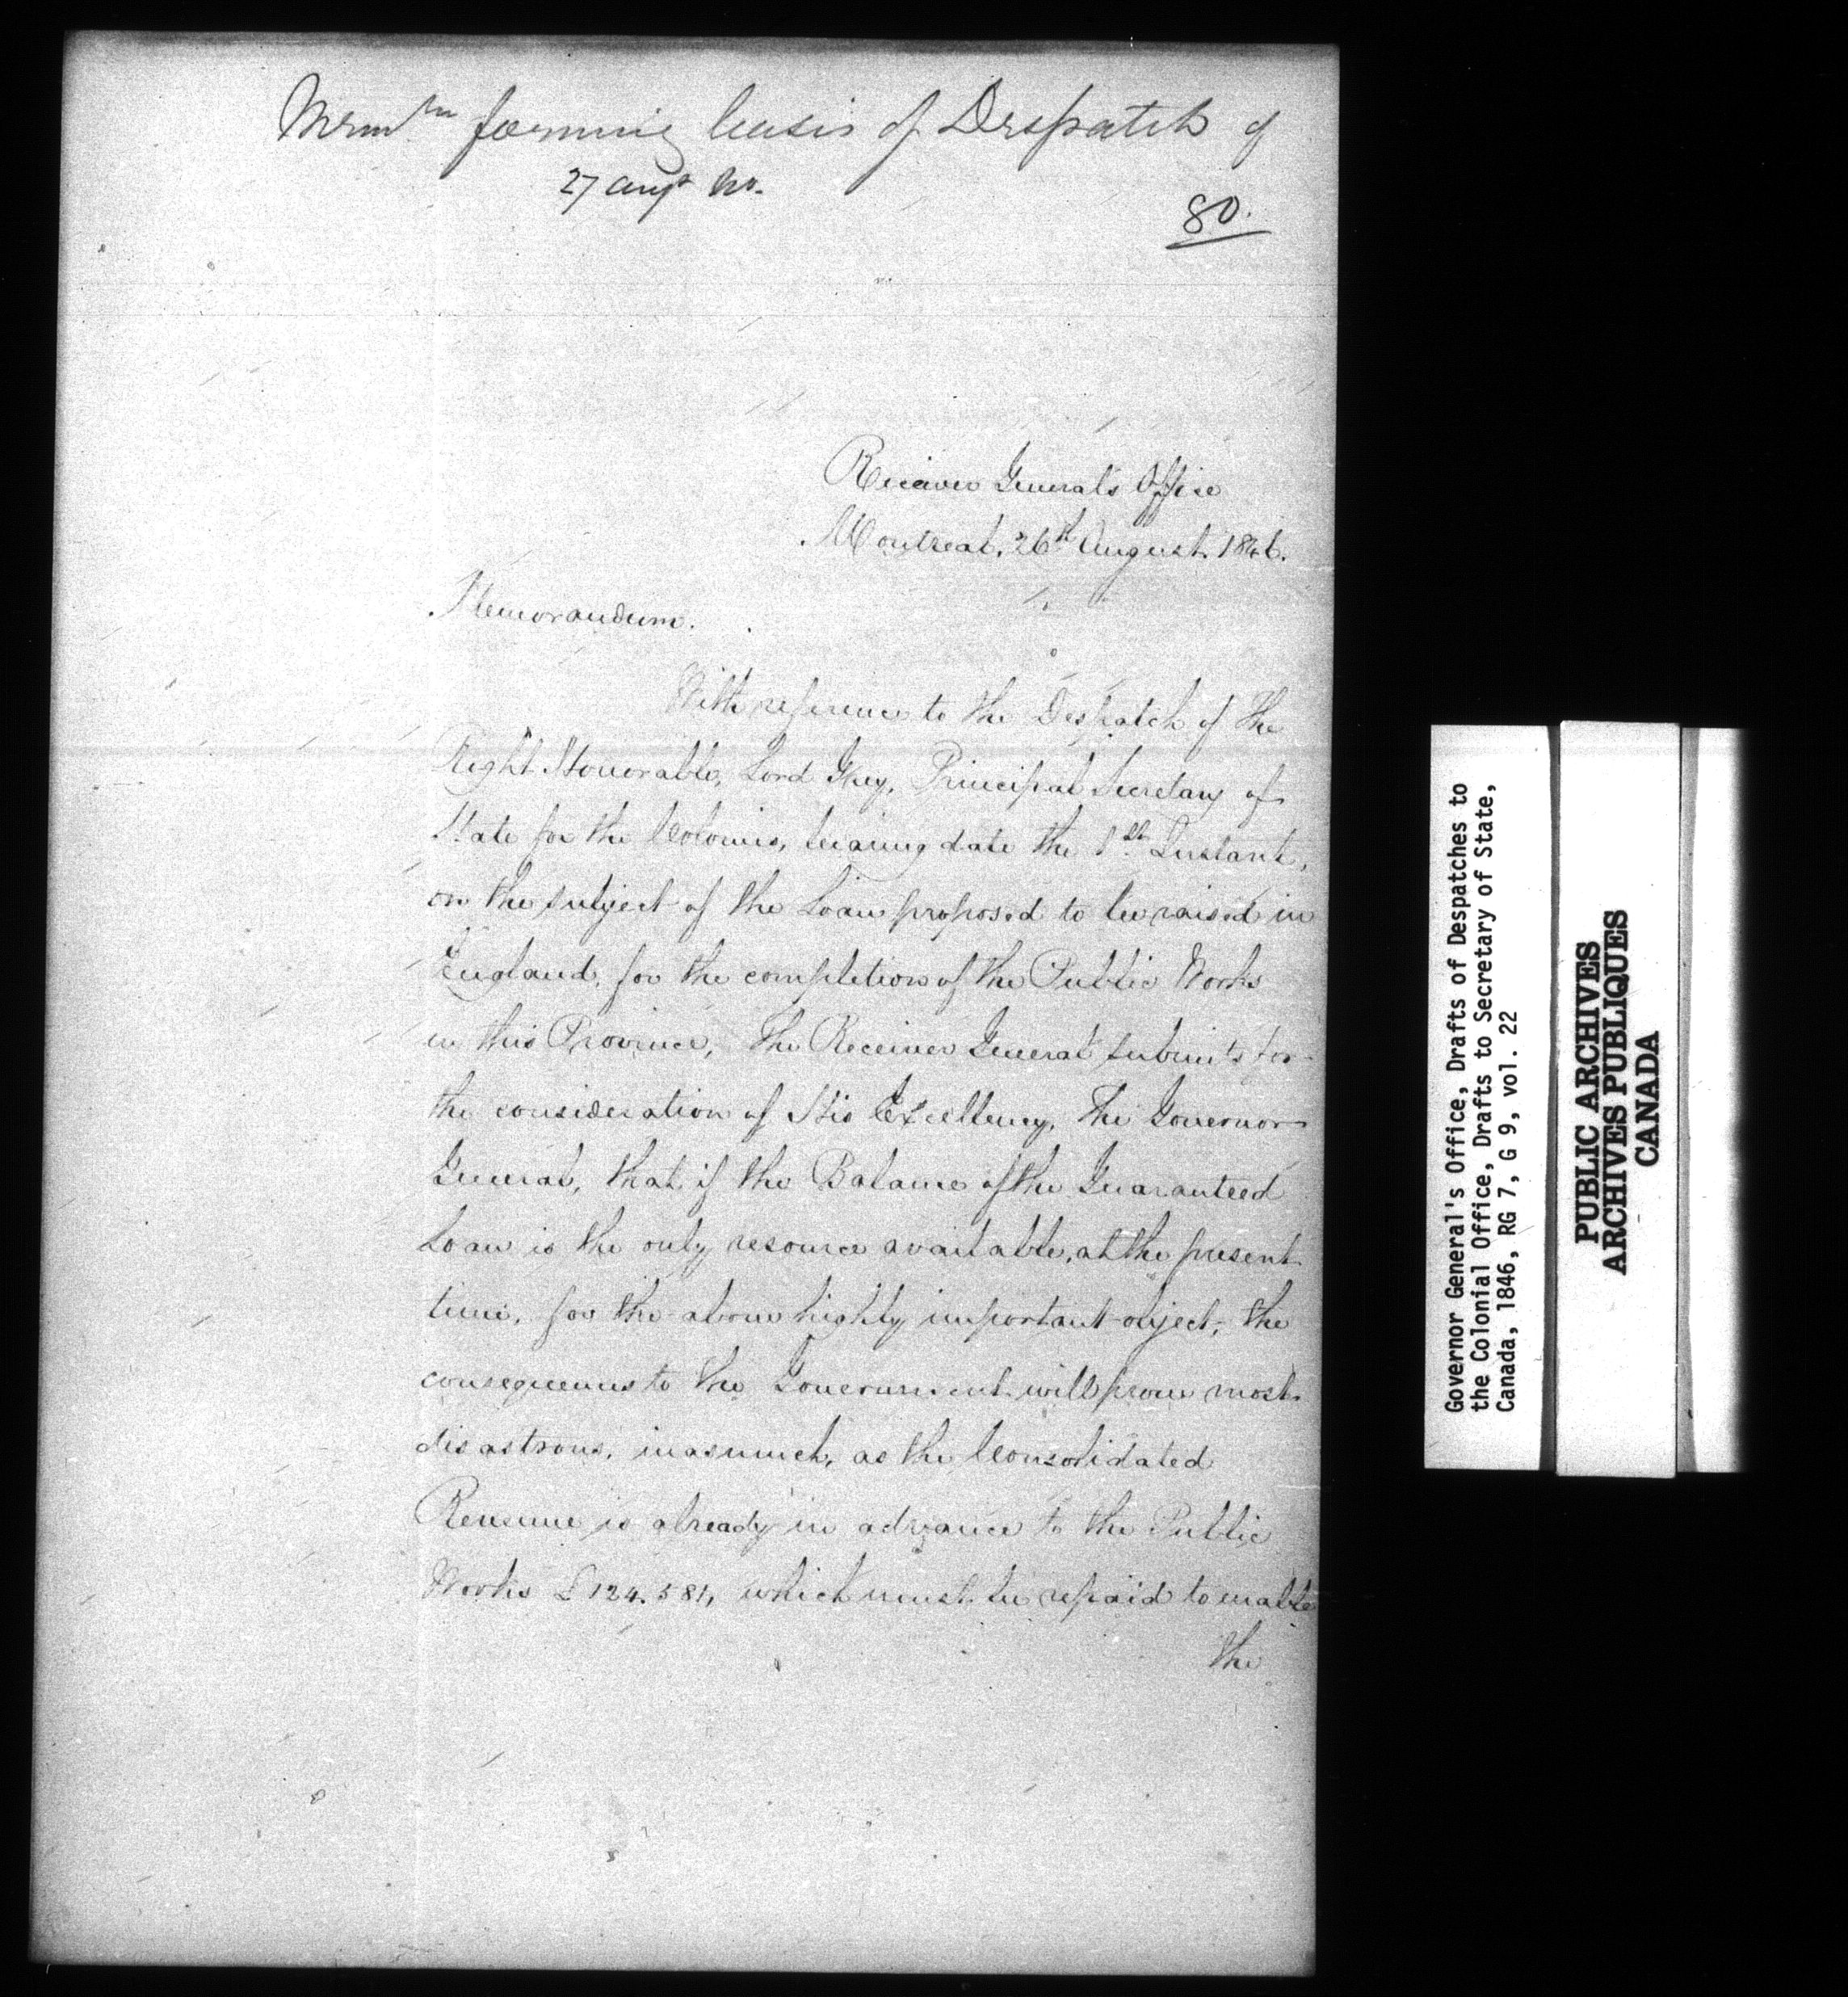 Memdm forming basis of Despatch of
27 Augt No.
80.
Receiver General's Office
Montreal, 26th August 1846.
Memorandum.
With reference to the Despatch of the
Right Honorable, Lord Grey, Principal Secretary of
State for the Colonies, bearing date the 1st Instant,
on the subject of the Loan proposed to be raised in
England, for the completion of the Public Works
in this Province, The Receiver General submits for
the consideration of His Excellency, The Governor
General, that if the Balance of the Guaranteed
Loan is the only resource available, at the present
time, for the above highly important object, the
consequences to the Government will prove most
disastrous, inasmuch, as the Consolidated
Revenue is already in advance to the Public
Works £124.581, which must be repaid to enable
the
Governor General's Office, Drafts of Despatches to
the Colonial Office, Drafts to Secretary of State,
Canada, 1846, RG 7, G 9, vol. 22
PUBLIC ARCHIVES
ARCHIVES PUBLIQUES
CANADA